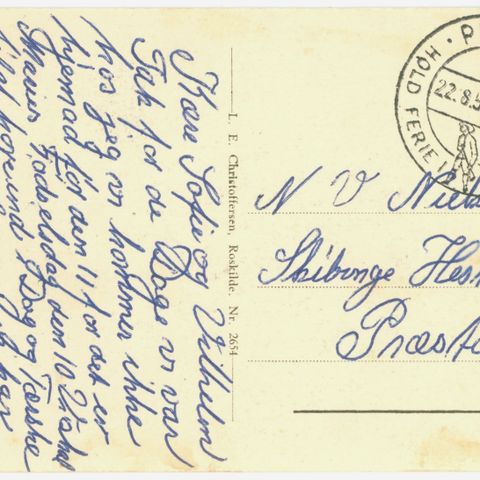 Kære Sofie og Vilhelm
Tak for de Dage vi var
hos jeg vi kommer ikke
hjemad før den 11 for det er
Marius Fødselsdag den 10
Dag og Tærske
L. E. Christoffersen, Roskilde. Nr. 2654
HOLD FERIE I
22.8.5
N V Niel
Skibinge Hes
Præst